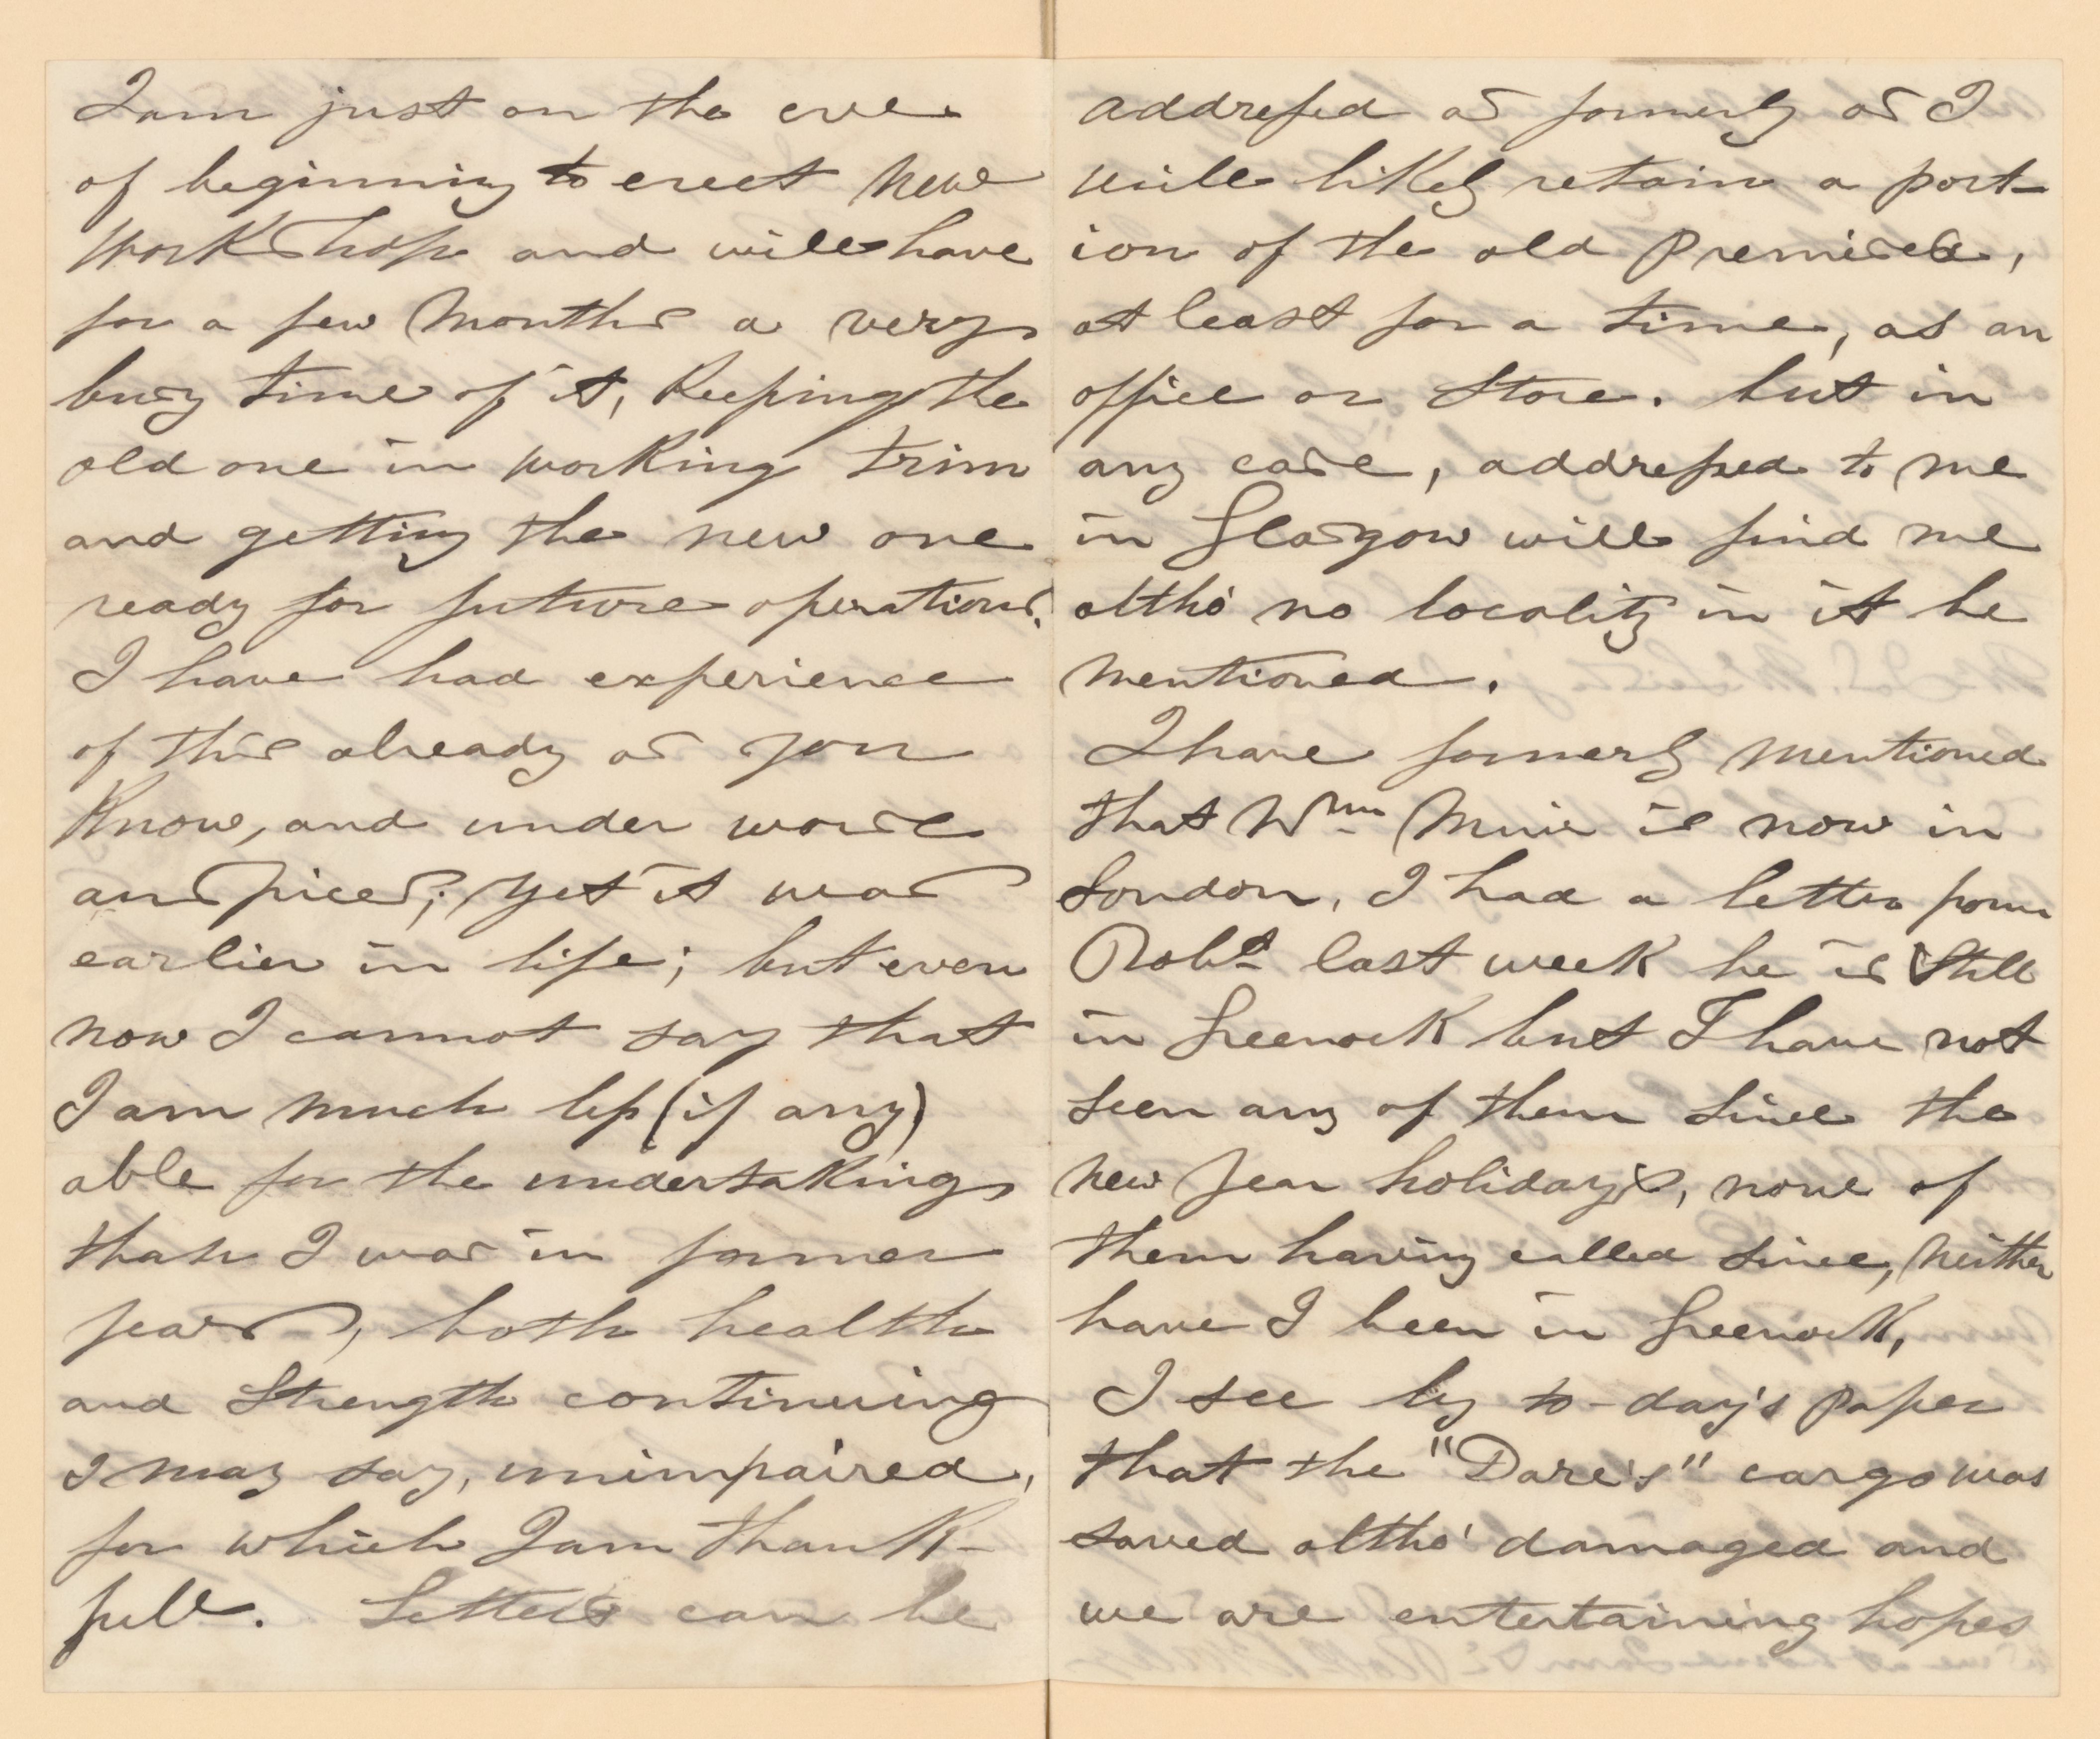 I am just on the eve
of beginning to erect new
WorkShop and will have
for a few Months a very
busy time of it, Keeping the
old one in working trim
and getting the new one
ready for future operations.
I have had experience
of this already as you
Know, and under worse
auspices; yet it was
earlier in life; but even
now I cannot say that
I am much less (if any)
able for the undertaking
than I was in former
years, both health
and Strength continuing
I may say, unimpaired,
for which I am thank-
full. Letters can be
addressed as formerly as I
will likely retain a port-
ion of the old Premises,
at least for a time, as an
office or Store. but in
any case, addressed to me
in Glasgow will find me
altho' no locality in it be
mentioned.
I have formerly mentioned
that Wm Muir is now in
London, I had a letter from
Robt last week he is Still
in Greenock but I have not
seen any of them since the
new year holidays, none of
them having called since, neither
have I been in Greenock,
I see by to-day's paper
that the "Dare's" cargo was
saved altho' damaged and
we are entertaining hopes